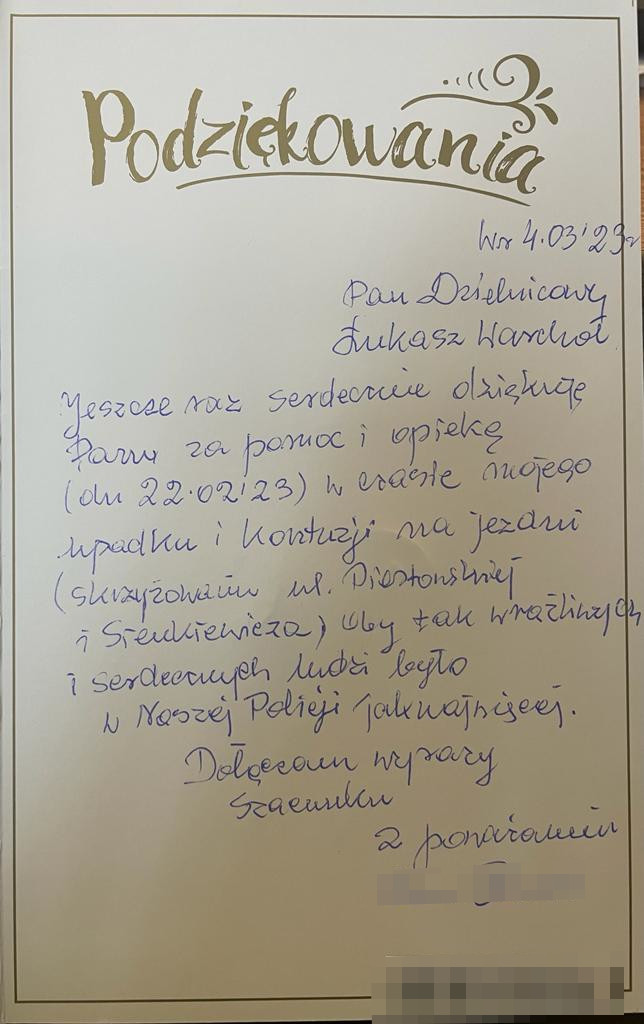 Podziękowania
Wr 4.03'23r
Pan Dzielnicowy
Łukasz Warchoł
Jeszcze raz serdecznie dziękuję
Panu za pomoc i opiekę
(dn 22.02'23) w czasie mojego
upadku i kontuzji na jezdni
(skrzyżowaniu ul. Piastowskiej
i Sienkiewicza) Oby tak wrażliwych
i serdecznych ludzi było
w Naszej Policji jaknajwięcej.
Dołączam wyrazy
Szacunku
Z poważaniem